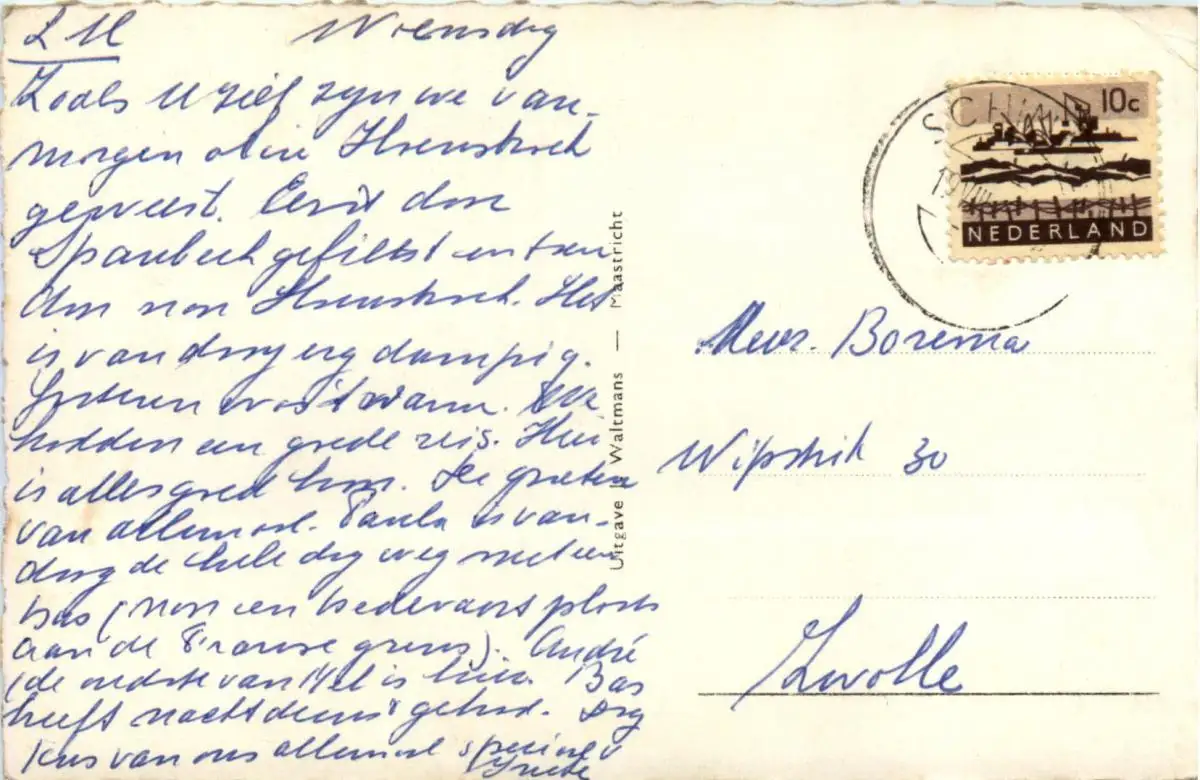 L M Woensdag
Zoals u ziet zyn we van-
morgen al in Heensbroek
geweest. Eerst door
Spaubeek gefietst en toen
door naar Hoensbroek. Het
is vandaag erg dampig.
Gisteren was 't warm. We
hadden een goede reis. Hier
is alles goed hoor. De groeten
van allemaal. Paula is van-
daag de hele dag weg met een
bus (naar een bedevaart plaats
aan de Franse grens). André
(de oudste van Nel is hier. Bas
heeft nachtdienst gehad. Dag
Kus van ons allemaal speciaal v
Griede
Uitgave J. Waltmans — Maastricht
SCHIN
10c
NEDERLAND
Mevr. Borema
Wipstrik 30
Zwolle